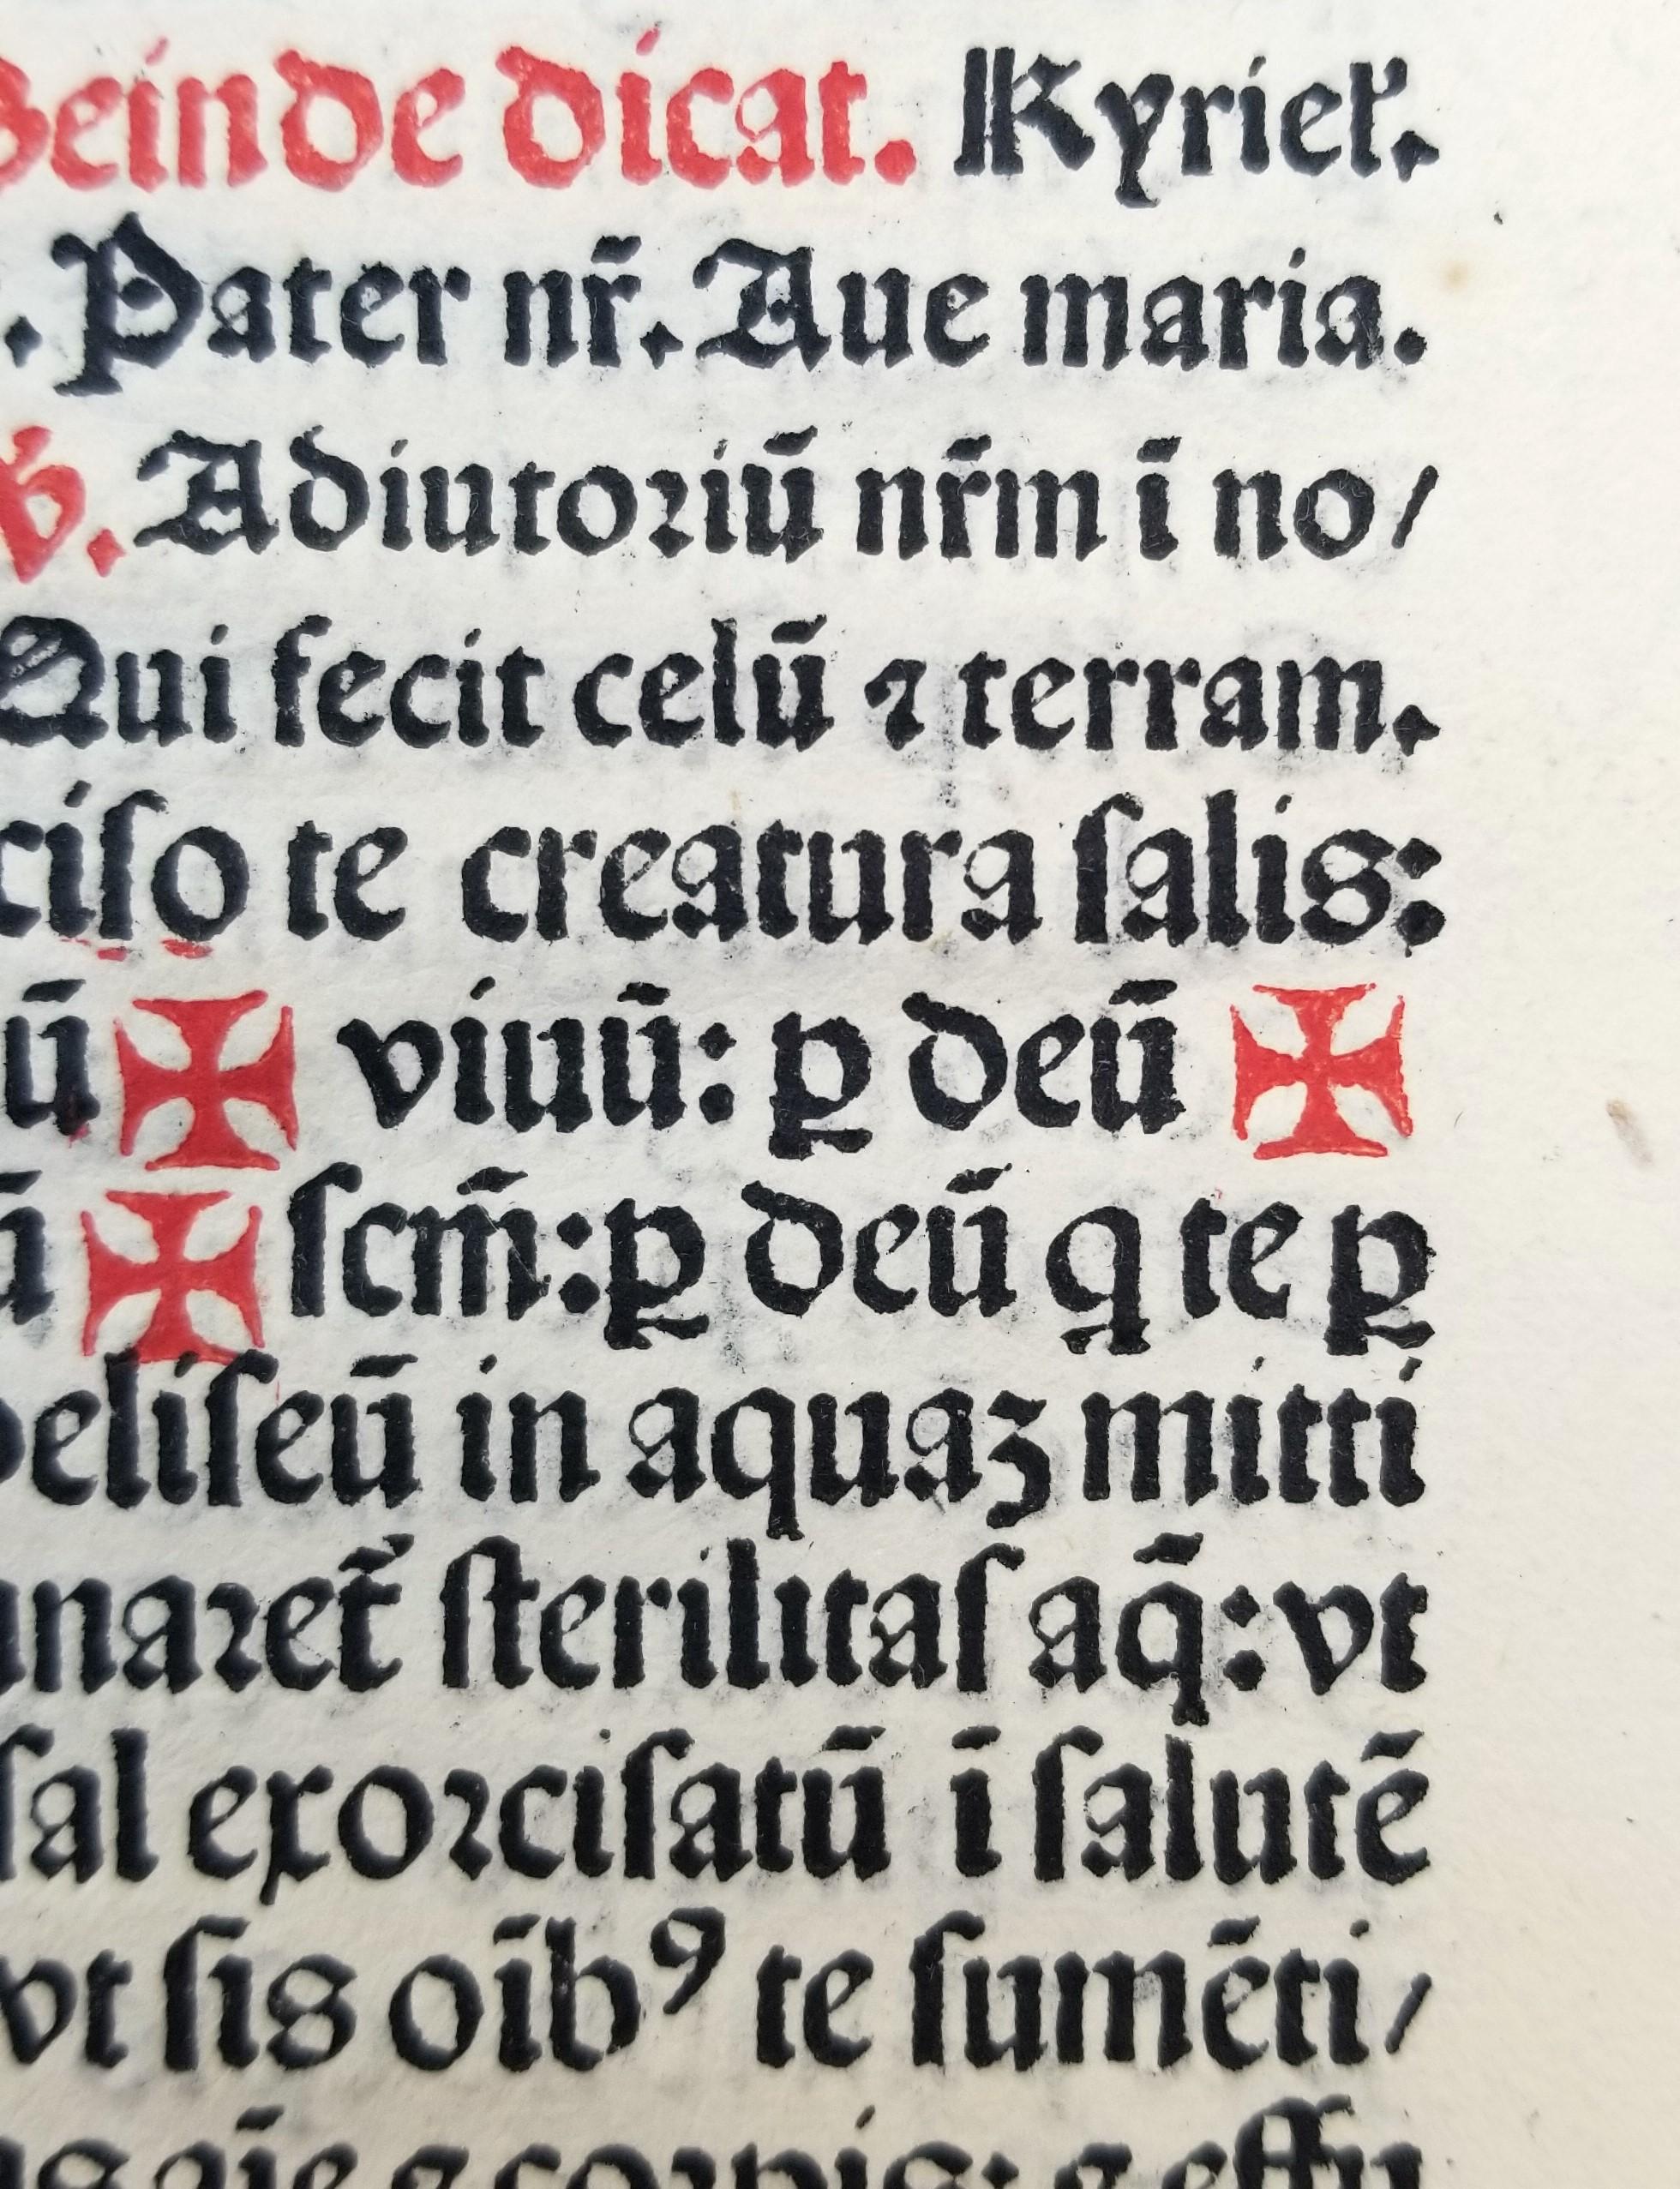 Deinde dicat. Kyriel'.
. Pater nr̄. Aue maria.
V̓. Adiutoꝛiū nr̄m ī no/
Qui fecit celū ⁊ terram.
ciſo te creatura ſalis:
ū ✠ viuū: ꝑ deū ✠
ū ✠ ſcm̄: ꝑ deū ꝗ te ꝑ
heliſeū in aquaꝫ mitti
anaꝛet̄ ſterilitaſ aq̄: vt
ſal exoꝛciſatū ī ſalutē
vt ſis oīb⁹ te ſumēti/
⁊ coꝛpis: ⁊ effu